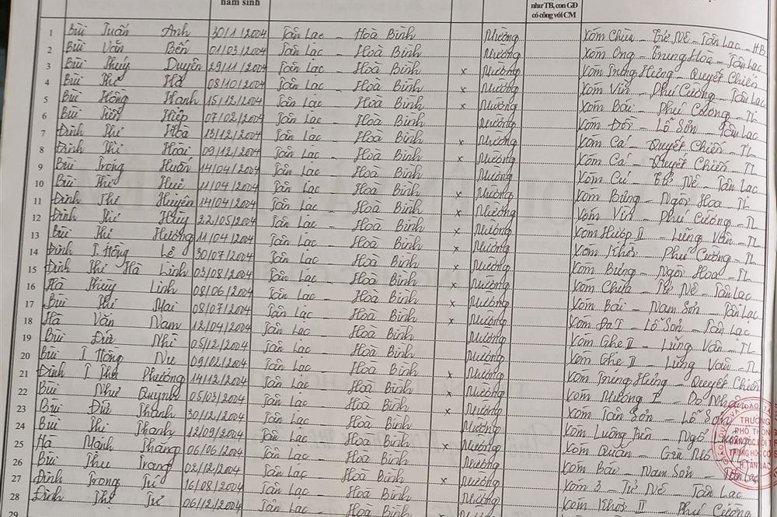 năm sinh
như TB, con GĐ
có công với CM
1 Bùi Tuấn Anh 30/11/2004 Tân Lạc - Hoà Bình Mường Xóm Chùa - Tử Nê - Tân Lạc - HB
2 Bùi Văn Bến 01/03/2004 Tân Lạc - Hoà Bình Mường Xóm Ong - Trung Hoà - Tân Lạc
3 Bùi Thuý Duyên 29/11/2004 Tân Lạc - Hoà Bình x Mường Xóm Trung Hưng - Quyết Chiến
4 Bùi Thị Hà 08/10/2004 Tân Lạc - Hoà Bình x Mường Xóm Vín - Phú Cường - Tân Lạc
5 Bùi Hồng Hạnh 15/12/2004 Tân Lạc - Hoà Bình x Mường Xóm Bái - Phú Cường - TL
6 Bùi Tiến Hiệp 07/02/2004 Tân Lạc - Hoà Bình Mường Xóm Đồi - Lỗ Sơn - Tân Lạc
7 Đinh Thị Hoà 13/12/2004 Tân Lạc - Hoà Bình x Mường Xóm Cá - Quyết Chiến - TL
8 Đinh Thị Hoài 09/12/2004 Tân Lạc - Hoà Bình x Mường Xóm Cá - Quyết Chiến - TL
9 Bùi Trọng Huấn 14/04/2004 Tân Lạc - Hoà Bình Mường Xóm Cú - Tử Nê - Tân Lạc
10 Bùi Thị Huê 11/04/2004 Tân Lạc - Hoà Bình x Mường Xóm Búng - Ngòi Hoa - TL
11 Đinh Thị Huyền 14/04/2004 Tân Lạc - Hoà Bình x Mường Xóm Vín - Phú Cường - TL
12 Đinh Thị 22/05/2004 Tân Lạc - Hoà Bình x Mường II - Lũng Vân - TL
13 Bùi Thị Hương 11/04/2004 Tân Lạc - Hoà Bình x Mường Xóm Khời - Phú Cường - TL
14 Đinh T. Hồng Lê 30/07/2004 Tân Lạc - Hoà Bình x Mường Xóm Búng - Ngòi Hoa - TL
15 Đinh Thị Hà Linh 03/08/2004 Tân Lạc - Hoà Bình x Mường Xóm Chùa - Tử Nê - Tân Lạc
16 Hà Thuỳ Linh 08/06/2004 Tân Lạc - Hoà Bình x Mường Xóm Bái - Nam Sơn - Tân Lạc
17 Bùi Thị Mai 05/07/2004 Tân Lạc - Hoà Bình x Mường Xóm - Lỗ Sơn - Tân Lạc
18 Hà Văn Nam 12/04/2004 Tân Lạc - Hoà Bình Mường Xóm Ghê II - Lũng Vân - TL
19 Bùi Đức Nhi 05/12/2004 Tân Lạc - Hoà Bình Mường Xóm Ghê II - Lũng Vân - TL
20 Bùi T Hồng 09/02/2004 Tân Lạc - Hoà Bình x Mường Xóm Trung Hưng - Quyết Chiến
21 Đinh T Thu Phương 14/12/2004 Tân Lạc - Hoà Bình x Mường Xóm
22 Bùi Như Quỳnh 05/03/2004 Tân Lạc - Hoà Bình x Mường Xóm Tân Sơn - Lỗ Sơn
23 Bùi Đức Thành 30/12/2004 Tân Lạc - Hoà Bình Mường Xóm
24 Bùi Thị Thanh 12/09/2004 Tân Lạc - Hoà Bình x Mường Xóm
25 Hà Mạnh Thắng 06/06/2004 Tân Lạc - Hoà Bình Mường Xóm Bái - Nam Sơn - Tân Lạc
26 Bùi Thu Trang 02/12/2004 Tân Lạc - Hoà Bình x Mường Xóm 3 - Tử Nê - Tân Lạc
27 Đinh Trọng Tứ 16/08/2004 Tân Lạc - Hoà Bình Mường Xóm Khời II - Phú Cường
28 Đinh Thị Tư 06/12/2004 Tân Lạc - Hoà Bình x Mường
29